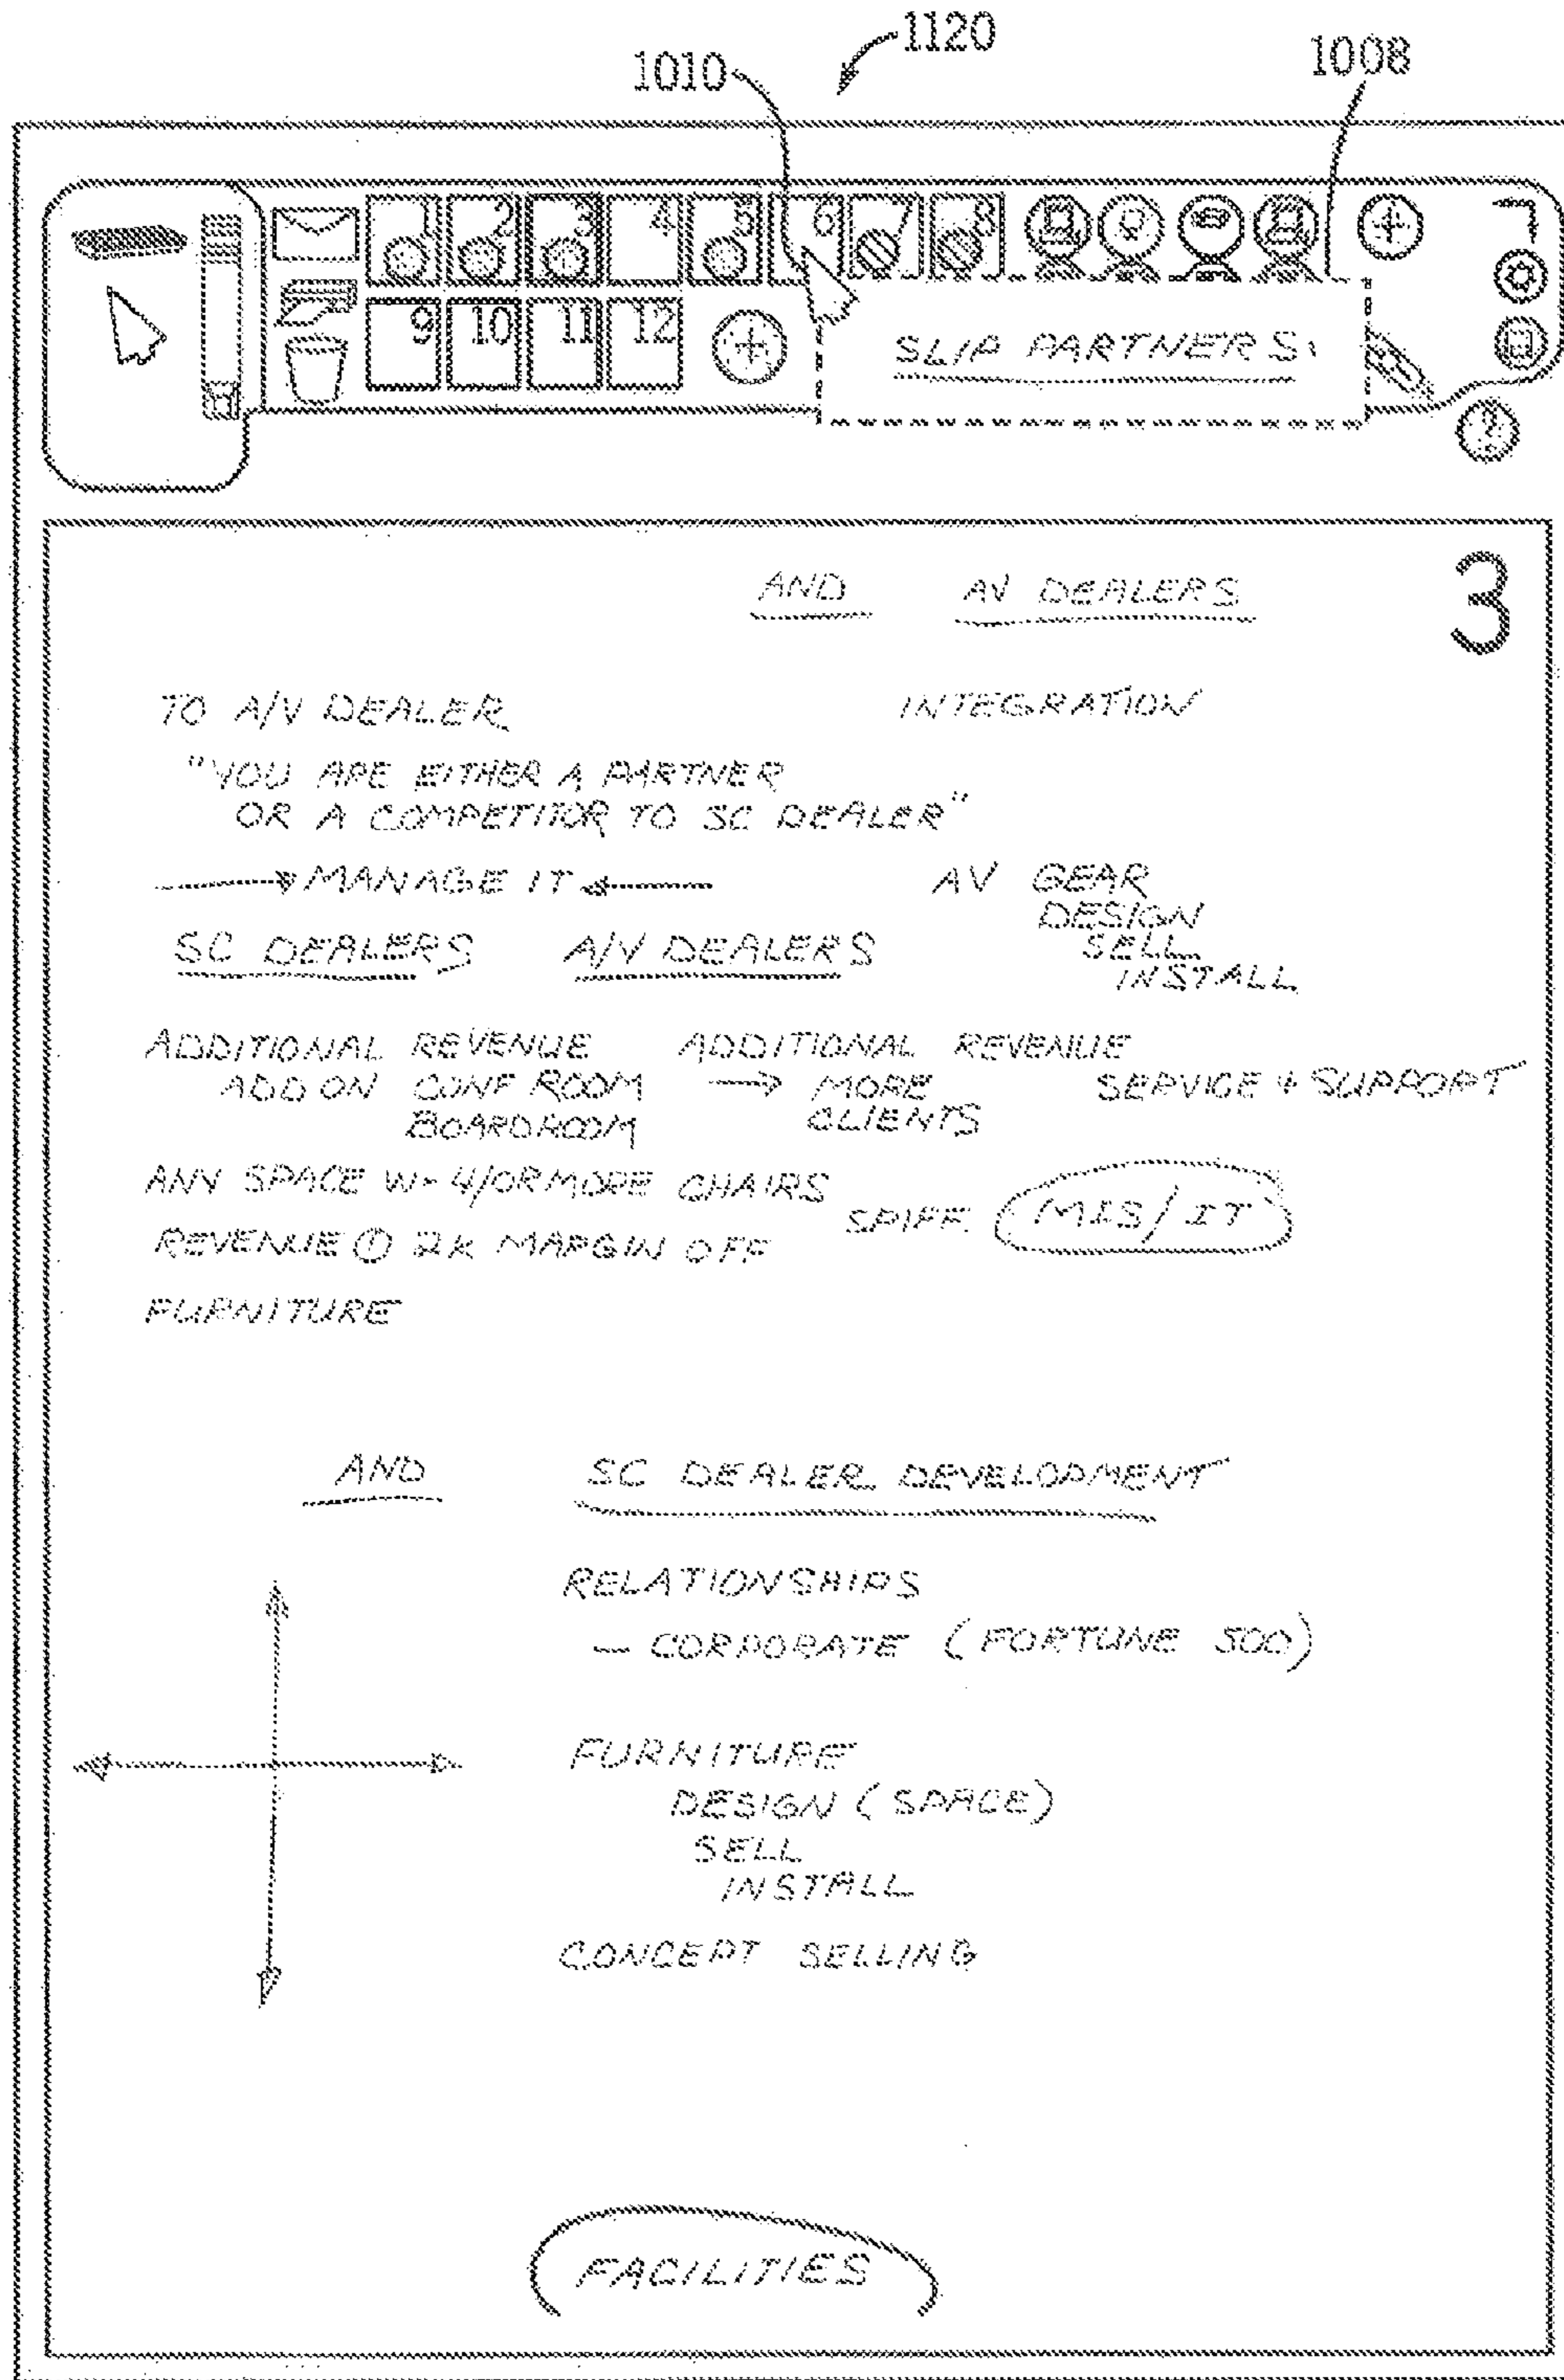 1120
1010
1008
1 2 3 4 5 6 7 8
9 10 11 12
SLIP PARTNERS
?
3
AND AV DEALERS
TO A/V DEALER INTEGRATION
"YOU ARE EITHER A PARTNER
OR A COMPETITOR TO SC DEALER"
MANAGE IT AV GEAR
DESIGN
SC DEALERS A/V DEALERS SELL
INSTALL
ADDITIONAL REVENUE ADDITIONAL REVENUE
ADD ON CONF ROOM → MORE SERVICE + SUPPORT
BOARDROOM CLIENTS
ANY SPACE W- 4/OR MORE CHAIRS
SPIFF MIS/IT
REVENUE ① 2K MARGIN OFF
FURNITURE
AND SC DEALER DEVELOPMENT
RELATIONSHIPS
— CORPORATE (FORTUNE 500)
FURNITURE
DESIGN (SPACE)
SELL
INSTALL
CONCEPT SELLING
FACILITIES